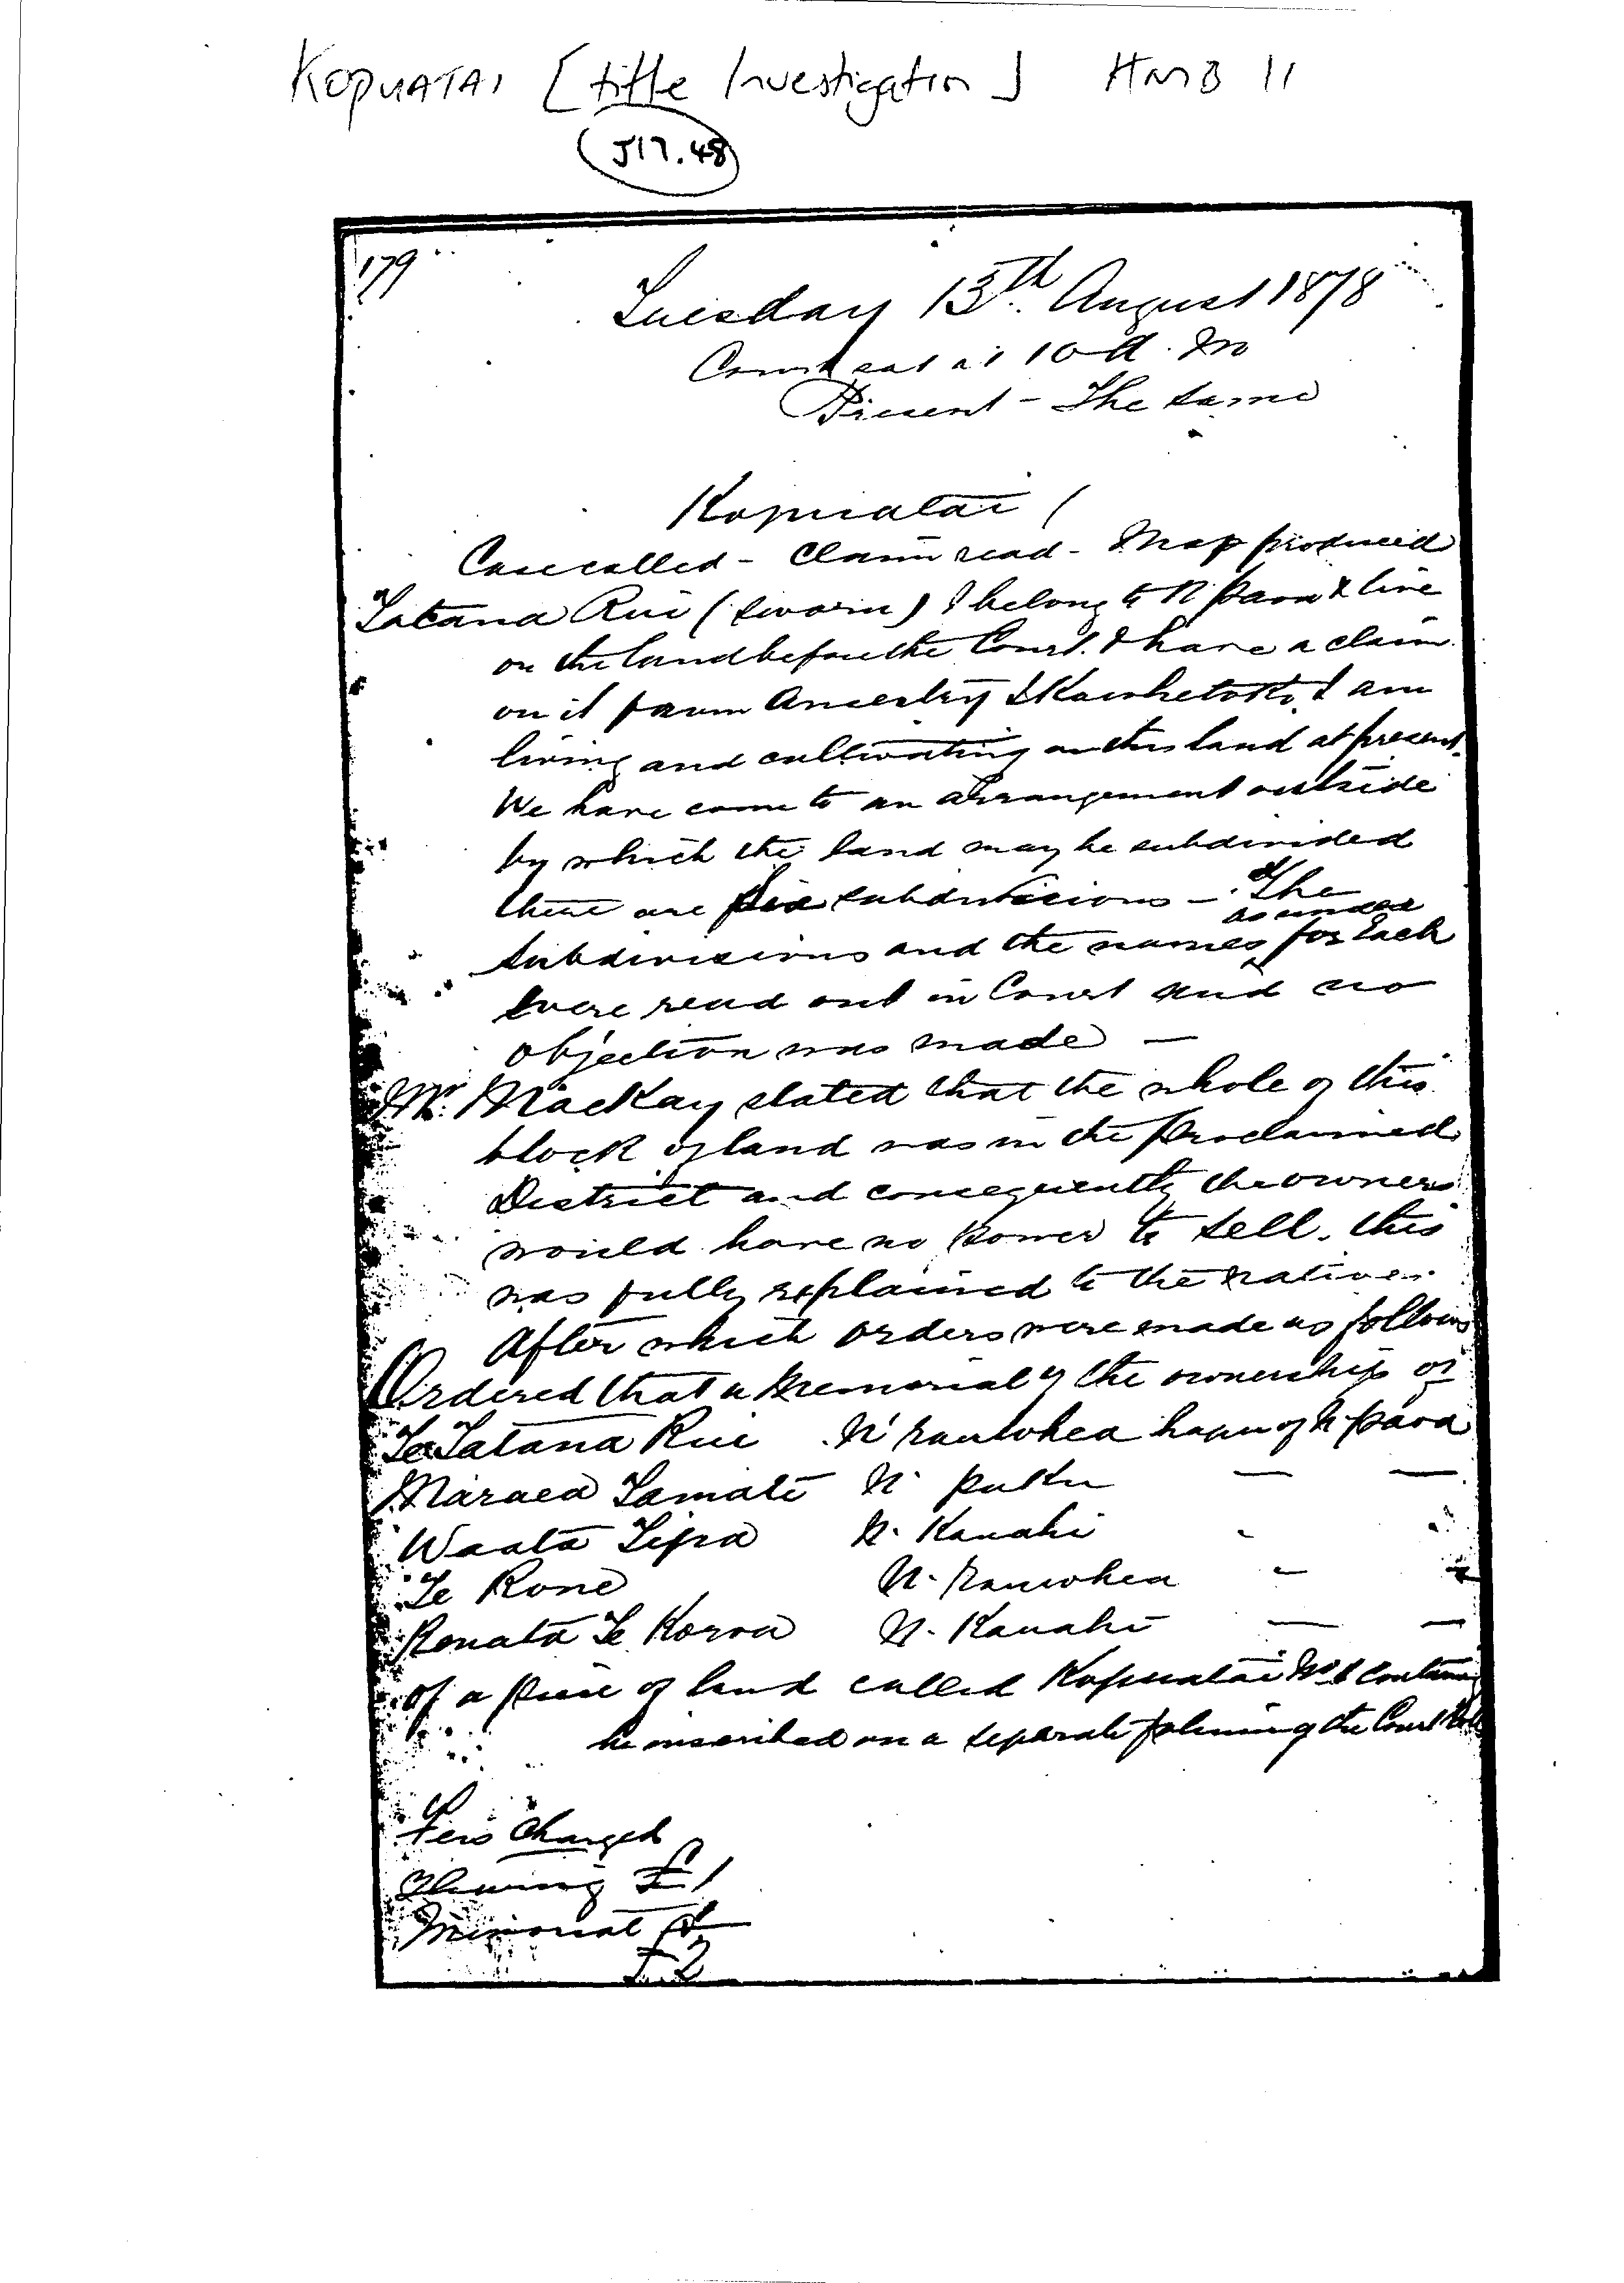 KOPUATAI [title Investigation] HMB 11
J17.48
179
Tuesday 13th. August 1878
Court sat at 10 A. M
Present - The same
Kopuatai 1
Case called - Claim read - Map produced
Tatana Rui (sworn) I belong to N' paoa & live
on the land before the Court. I have a claim
on it from Ancestry & I am
living and cultivating on this land at present.
We have come to an arrangement outside
by which the land may be subdivided
there are six subdivisions - The
subdivisions and the names as under for each
were read out in Court and no
objection was made -
Mr. Mackay stated that the whole of this
block of land was in the proclaimed
District and consequently the owners
would have no power to sell. this
was fully explained to the natives.
After which orders were made as follows
Ordered that a Memorial of the ownership of
Te Tatana Rui N' rauwhea hapu of N' paoa
Maraea Tamati N' puku — —
Waata Tipa N. Kauahi - "
Te Rone N. rauwhea - -
Renata Te Korra N. Kauahi — —
of a piece of land called Kopuatai No 1 containing
be inscribed on a separate folium of the Court Rolls
Fees Charged
Hearing £1
Memorial £1
£2